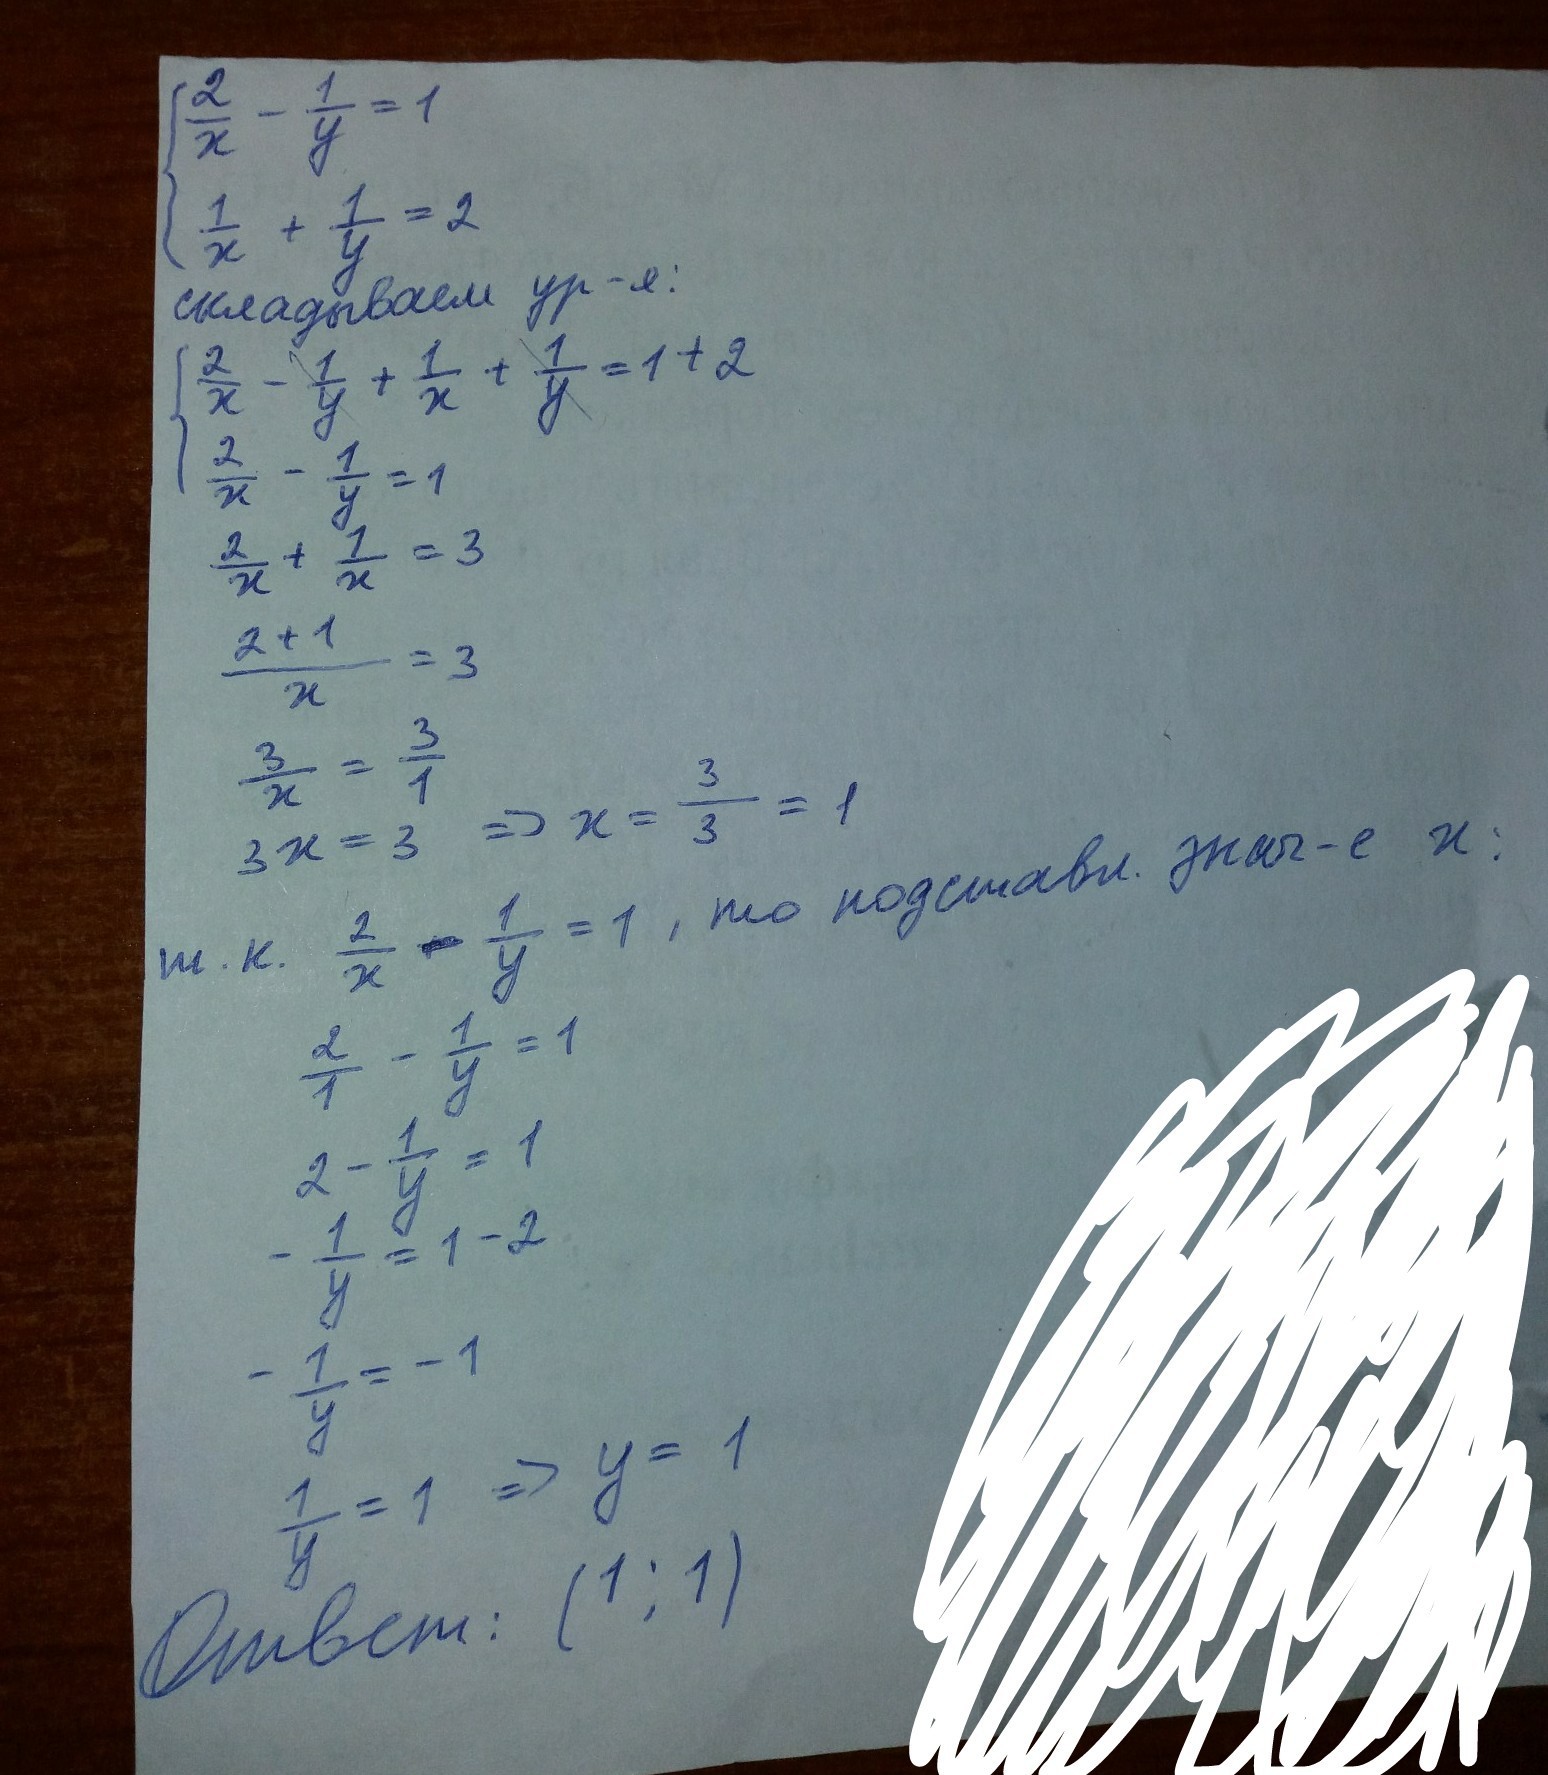 2/x - 1/y = 1
1/x + 1/y = 2
складываем ур-я:
2/x - 1/y + 1/x + 1/y = 1 + 2
2/x - 1/y = 1
2/x + 1/x = 3
2+1/x = 3
3/x = 3/1
3x = 3 => x = 3/3 = 1
т.к. 2/x - 1/y = 1, то подставл. знач-е x:
2/1 - 1/y = 1
2 - 1/y = 1
- 1/y = 1 - 2
- 1/y = - 1
1/y = 1 => y = 1
Ответ: (1; 1)